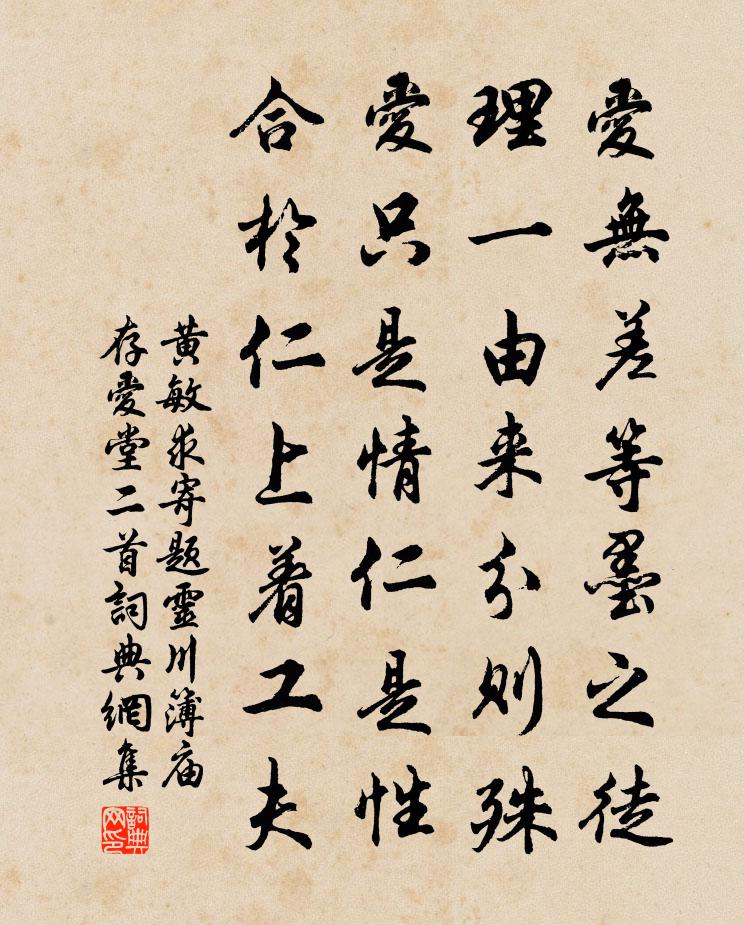 愛無差等墨之徒
理一由来分則殊
愛只是情仁是性
合於仁上着工夫
黄敏求寄題靈川簿廟
存愛堂二首詞典網集
詞典网印